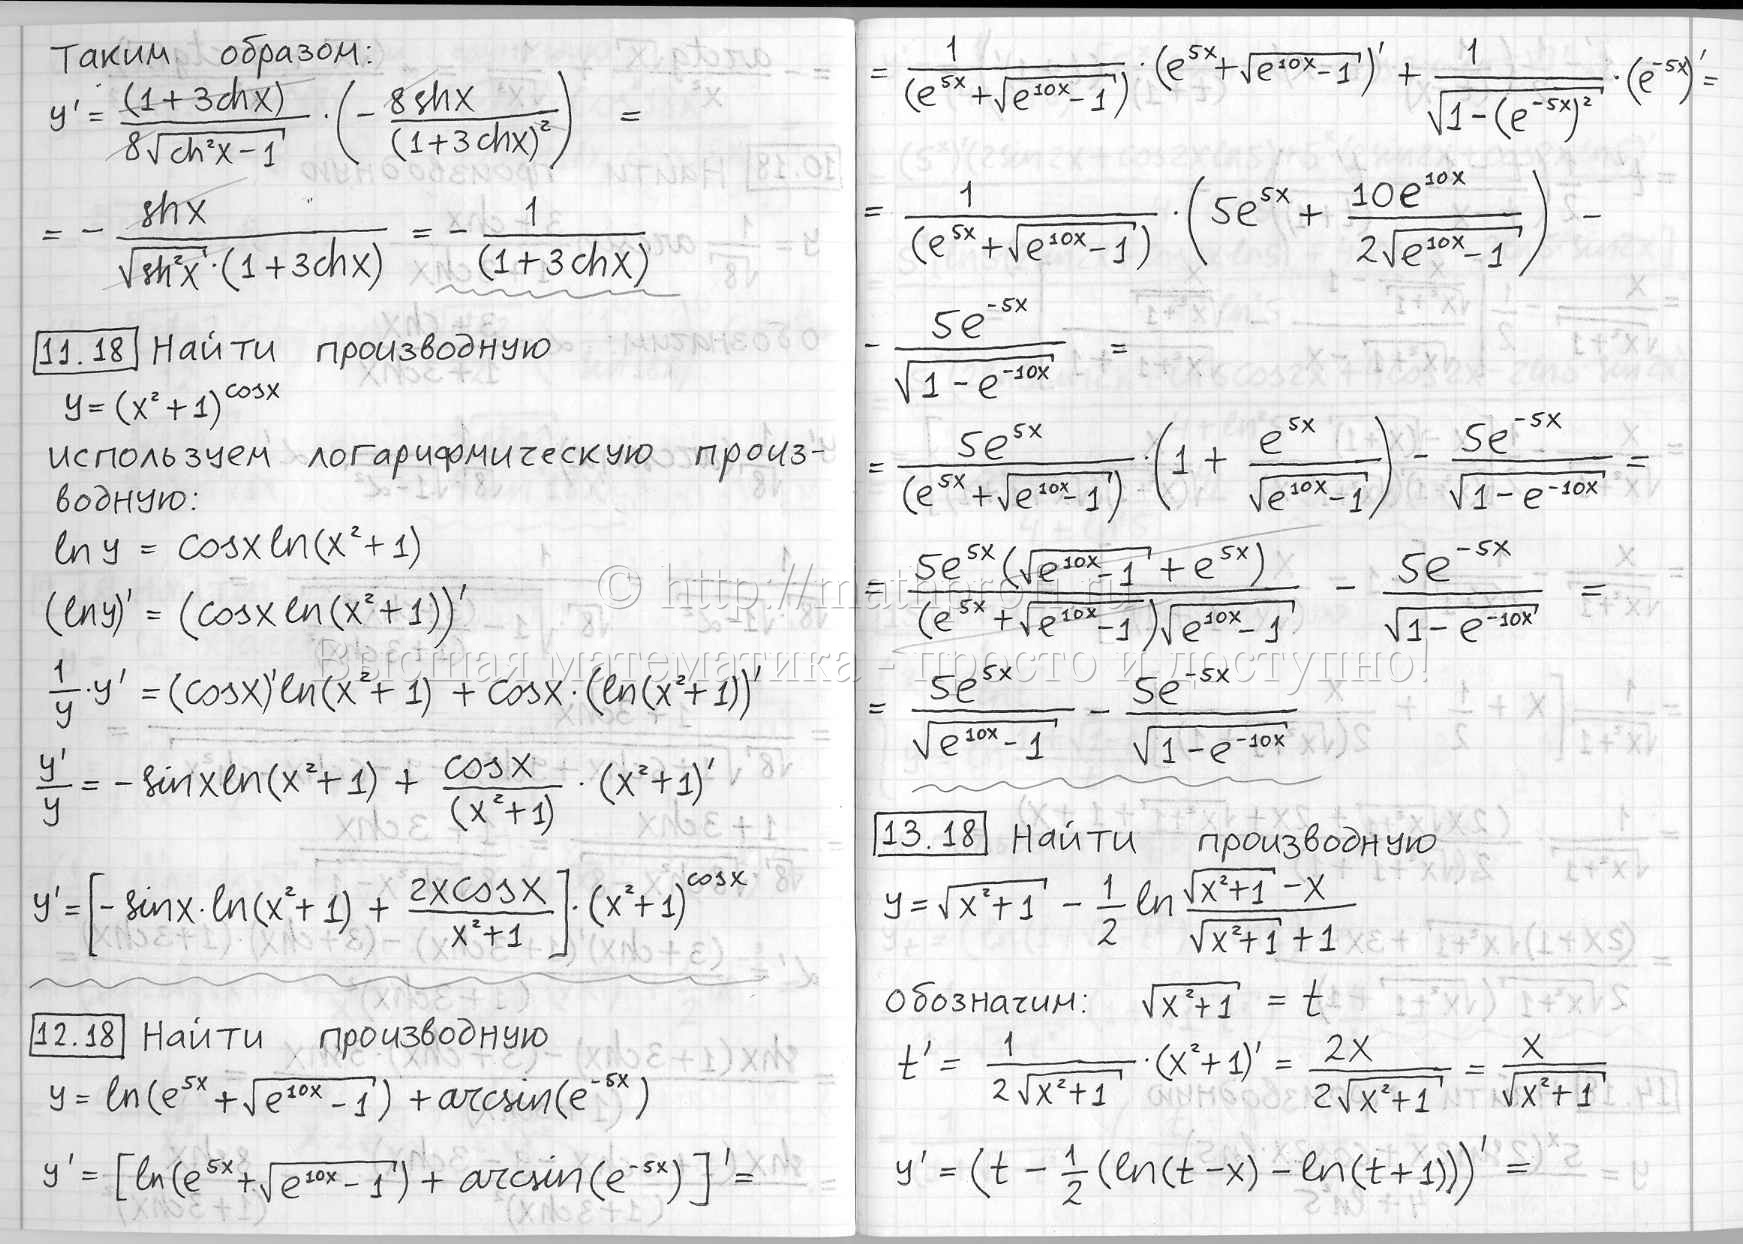 Таким образом:
y' = (1+3chx)/(8√(ch²x-1)) · (-8shx/(1+3chx)²) =
= - shx/(√(sh²x)·(1+3chx)) = - 1/(1+3chx)
11.18 Найти производную
y=(x²+1)^cosx
Используем логарифмическую произ-
водную:
ln y = cosx ln(x²+1)
(lny)' = (cosx ln(x²+1))'
1/y·y' = (cosx)'ln(x²+1) + cosx·(ln(x²+1))'
y'/y = -sinxln(x²+1) + cosx/(x²+1) · (x²+1)'
y' = [-sinx·ln(x²+1) + 2xcosx/(x²+1)]·(x²+1)^cosx
12.18 Найти производную
y = ln(e^5x+√(e^10x-1)) + arcsin(e^-5x)
y' = [ln(e^5x+√(e^10x-1)) + arcsin(e^-5x)]' =
= 1/(e^5x+√(e^10x-1)) · (e^5x+√(e^10x-1))' + 1/√(1-(e^-5x)²) · (e^-5x)' =
= 1/(e^5x+√(e^10x-1)) · (5e^5x + 10e^10x/(2√(e^10x-1))) -
- 5e^-5x/√(1-e^-10x) =
= 5e^5x/(e^5x+√(e^10x-1)) · (1 + e^5x/√(e^10x-1)) - 5e^-5x/√(1-e^-10x) =
= 5e^5x(√(e^10x-1)+e^5x)/((e^5x+√(e^10x-1))√(e^10x-1)) - 5e^-5x/√(1-e^-10x) =
= 5e^5x/√(e^10x-1) - 5e^-5x/√(1-e^-10x)
13.18 Найти производную
y=√(x²+1) - 1/2 ln (√(x²+1)-x)/(√(x²+1)+1)
Обозначим: √(x²+1) = t
t' = 1/(2√(x²+1)) · (x²+1)' = 2x/(2√(x²+1)) = x/√(x²+1)
y' = (t - 1/2 (ln(t-x) - ln(t+1)))' =
© http://mathprofi.ru
Высшая математика - просто и доступно!